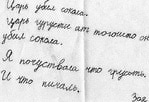 Царь убил сокола.
Царь грустит от того что он
убил сокола.
Я почувствовала что грусть.
И что печаль.
Зоя